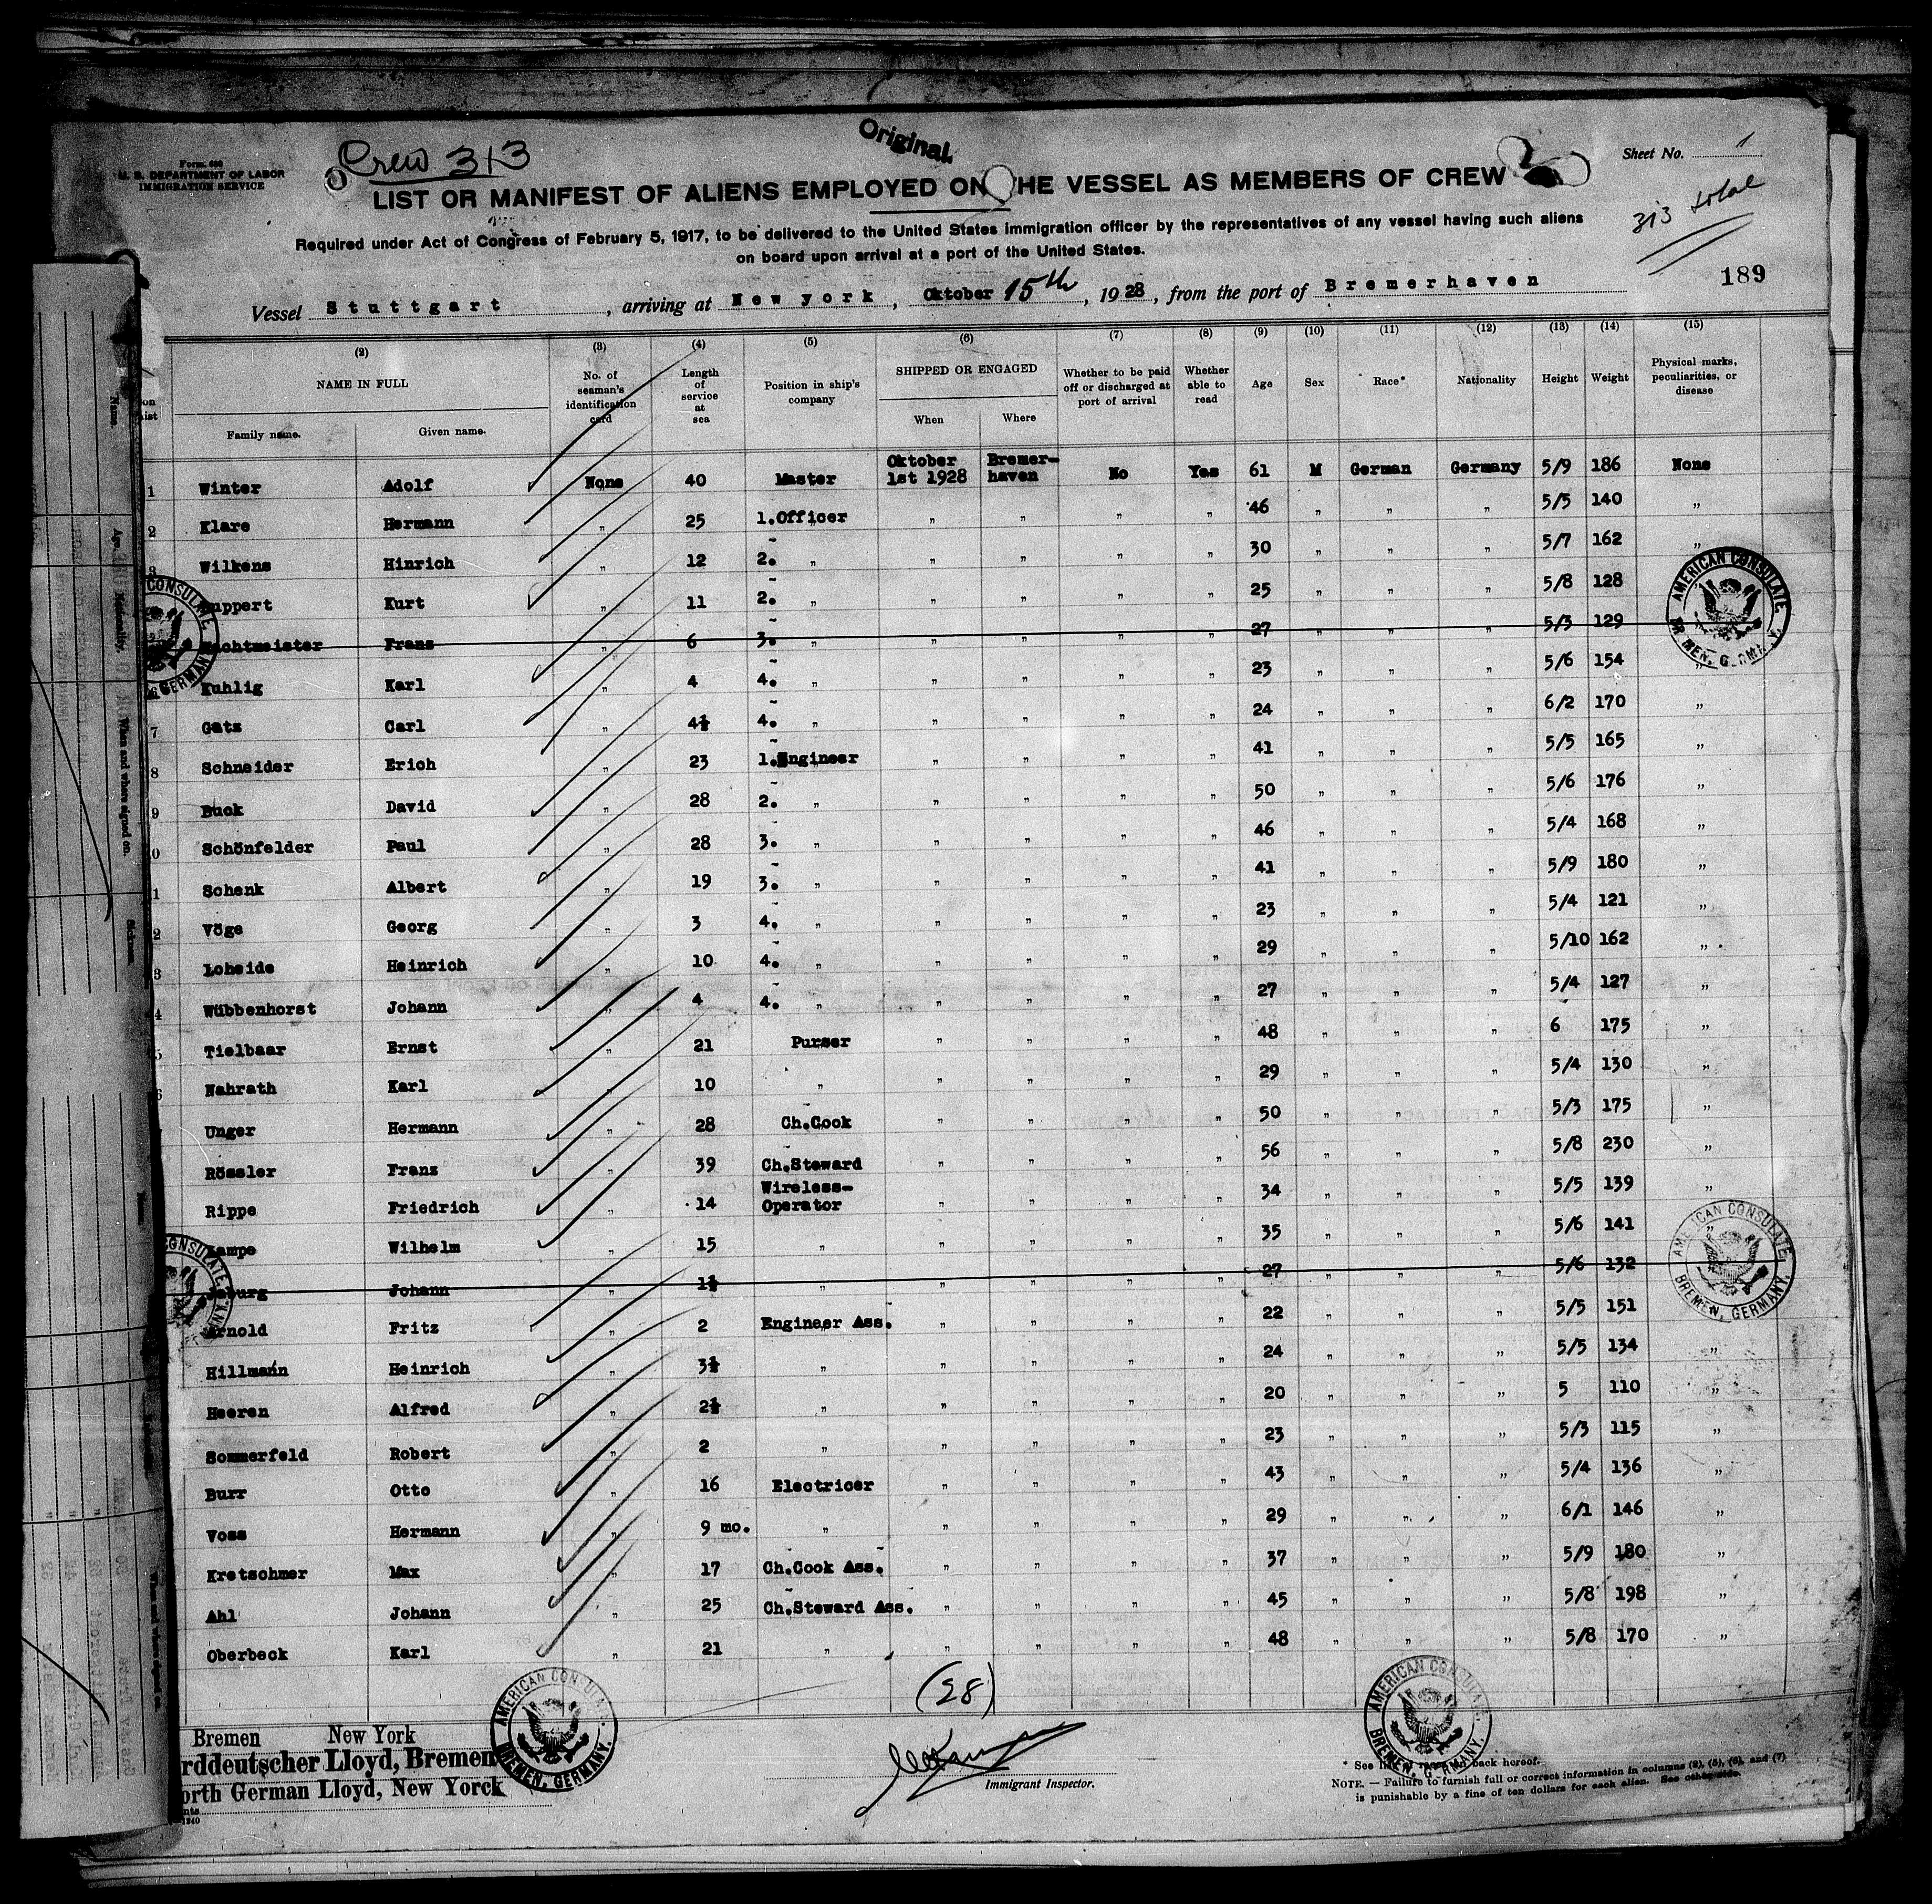 Original
Crew 313
Form 680
U. S. DEPARTMENT OF LABOR
IMMIGRATION SERVICE
Sheet No. 1
LIST OR MANIFEST OF ALIENS EMPLOYED ON THE VESSEL AS MEMBERS OF CREW
313 total
Required under Act of Congress of February 5, 1917, to be delivered to the United States Immigration officer by the representatives of any vessel having such aliens
on board upon arrival at a port of the United States.
189
Vessel Stuttgart, arriving at New york, Oktober 15th, 1928, from the port of Bremerhaven
(2) (3) (4) (5) (6) (7) (8) (9) (10) (11) (12) (13) (14) (15)
NAME IN FULL No. of seaman's identification card Length of service at sea Position in ship's company SHIPPED OR ENGAGED Whether to be paid off or discharged at port of arrival Whether able to read Age Sex Race* Nationality Height Weight Physical marks, peculiarities, or disease
Family name. Given name. When Where
1 Winter Adolf None 40 Master Oktober 1st 1928 Bremer-haven No Yes 61 M German Germany 5/9 186 None
2 Klare Hermann „ 25 1.Officer „ „ „ „ 46 „ „ „ 5/5 140 „
3 Wilkens Hinrich „ 12 2. „ „ „ „ „ 30 „ „ „ 5/7 162 „
uppert Kurt „ 11 2. „ „ „ „ „ 25 „ „ „ 5/8 128
chtmeister Franz „ 6 3. „ „ „ „ „ 27 „ „ „ 5/3 129
Kuhlig Karl „ 4 4. „ „ „ „ „ 23 „ „ „ 5/6 154 „
7 Gatz Carl „ 4½ 4. „ „ „ „ „ 24 „ „ „ 6/2 170 „
8 Schneider Erich „ 23 1.Engineer „ „ „ „ 41 „ „ „ 5/5 165 „
9 Buck David „ 28 2. „ „ „ „ „ 50 „ „ „ 5/6 176 „
0 Schönfelder Paul „ 28 3. „ „ „ „ „ 46 „ „ „ 5/4 168 „
1 Schenk Albert „ 19 3. „ „ „ „ „ 41 „ „ „ 5/9 180 „
2 Vöge Georg „ 3 4. „ „ „ „ „ 23 „ „ „ 5/4 121 „
3 Loheide Heinrich „ 10 4. „ „ „ „ „ 29 „ „ „ 5/10 162 „
4 Wübbenhorst Johann „ 4 4. „ „ „ „ „ 27 „ „ „ 5/4 127 „
5 Tielbaar Ernst „ 21 Purser „ „ „ „ 48 „ „ „ 6 175 „
6 Nahrath Karl „ 10 „ „ „ „ „ 29 „ „ „ 5/4 130 „
Unger Hermann „ 28 Ch.Cook „ „ „ „ 50 „ „ „ 5/3 175 „
Rössler Franz „ 39 Ch.Steward „ „ „ „ 56 „ „ „ 5/8 230 „
Rippe Friedrich „ 14 Wireless-Operator „ „ „ „ 34 „ „ „ 5/5 139 „
Lampe Wilhelm „ 15 „ „ „ „ „ 35 „ „ „ 5/6 141 „
burg Johann „ 1½ „ „ „ „ „ 27 „ „ „ 5/6 132
Arnold Fritz „ 2 Engineer Ass. „ „ „ „ 22 „ „ „ 5/5 151
Hillmann Heinrich „ 3½ „ „ „ „ „ 24 „ „ „ 5/5 134 „
Heeren Alfred „ 2½ „ „ „ „ „ 20 „ „ „ 5 110 „
Sommerfeld Robert „ 2 „ „ „ „ „ 23 „ „ „ 5/3 115 „
Burr Otto „ 16 Electricer „ „ „ „ 43 „ „ „ 5/4 136 „
Voss Hermann „ 9 mo. „ „ „ „ „ 29 „ „ „ 6/1 146 „
Kretschmer Max „ 17 Ch.Cook Ass. „ „ „ „ 37 „ „ „ 5/9 180 „
Ahl Johann „ 25 Ch.Steward Ass. „ „ „ „ 45 „ „ „ 5/8 198 „
Oberbeck Karl „ 21 „ „ „ „ „ 48 „ „ „ 5/8 170 „
AMERICAN CONSULATE
BREMEN, GERMANY.
(28)
Bremen New York
rddeutscher Lloyd, Bremen
orth German Lloyd, New Yorck
Immigrant Inspector.
* See back hereof.
NOTE. — Failure to furnish full or correct information in columns (2), (5), (6), and (7)
is punishable by a fine of ten dollars for each alien. See other side.